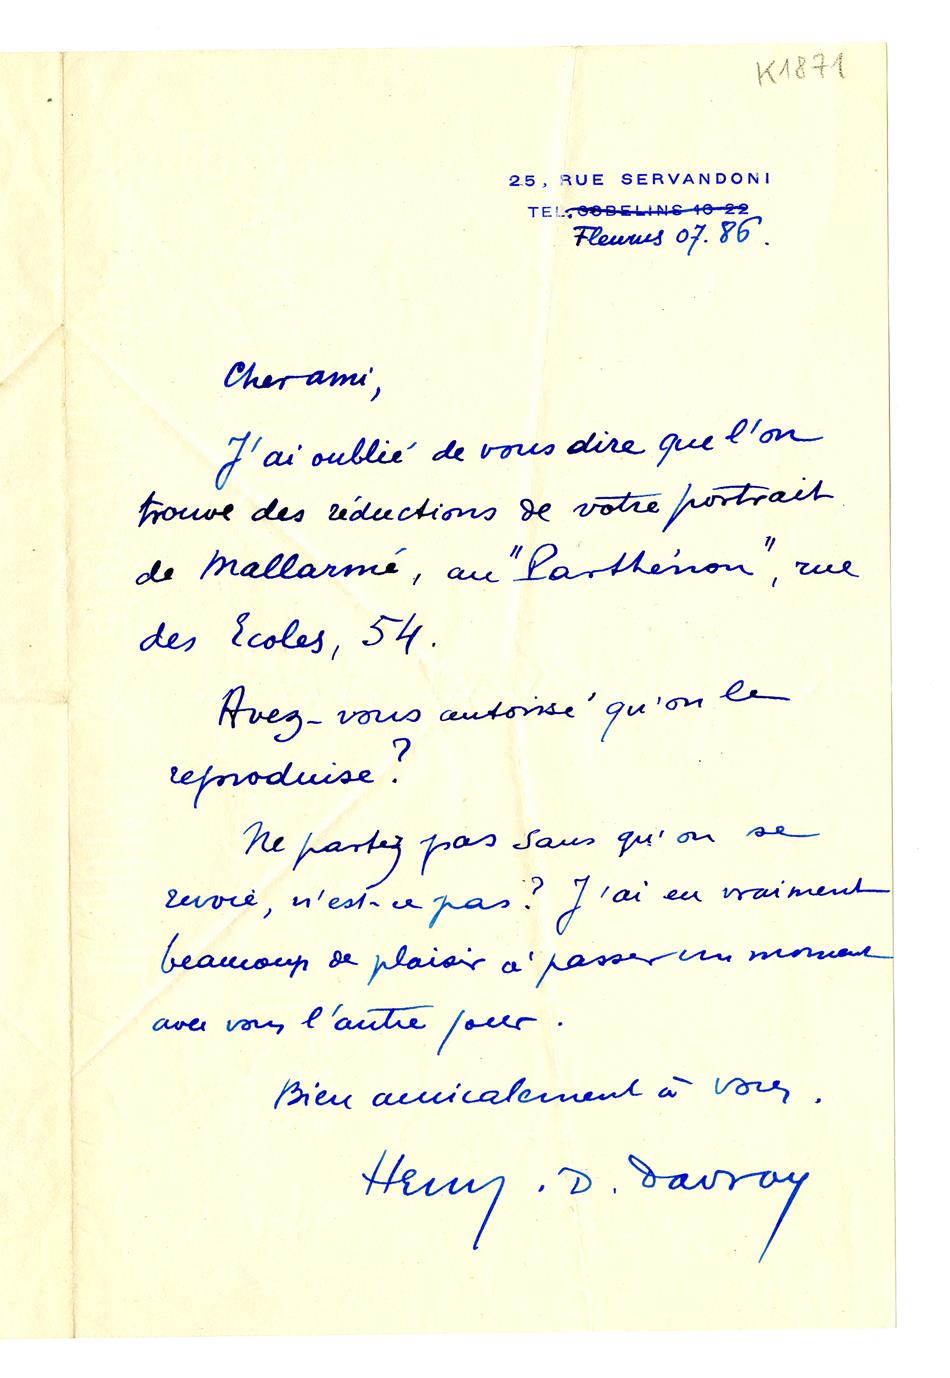 K1871
25, RUE SERVANDONI
TEL. GOBELINS 10-22
Fleurus 07.86.
Cher ami,
J'ai oublié de vous dire que l'on
trouve des réductions de votre portrait
de Mallarmé, au "Parthénon", rue
des Ecoles, 54.
Avez-vous autorisé qu'on le
reproduise?
Ne partez pas sans qu'on se
revoie, n'est-ce pas? J'ai eu vraiment
beaucoup de plaisir à passer un moment
avec vous l'autre jour.
Bien amicalement à vous.
Henry. D. Davray